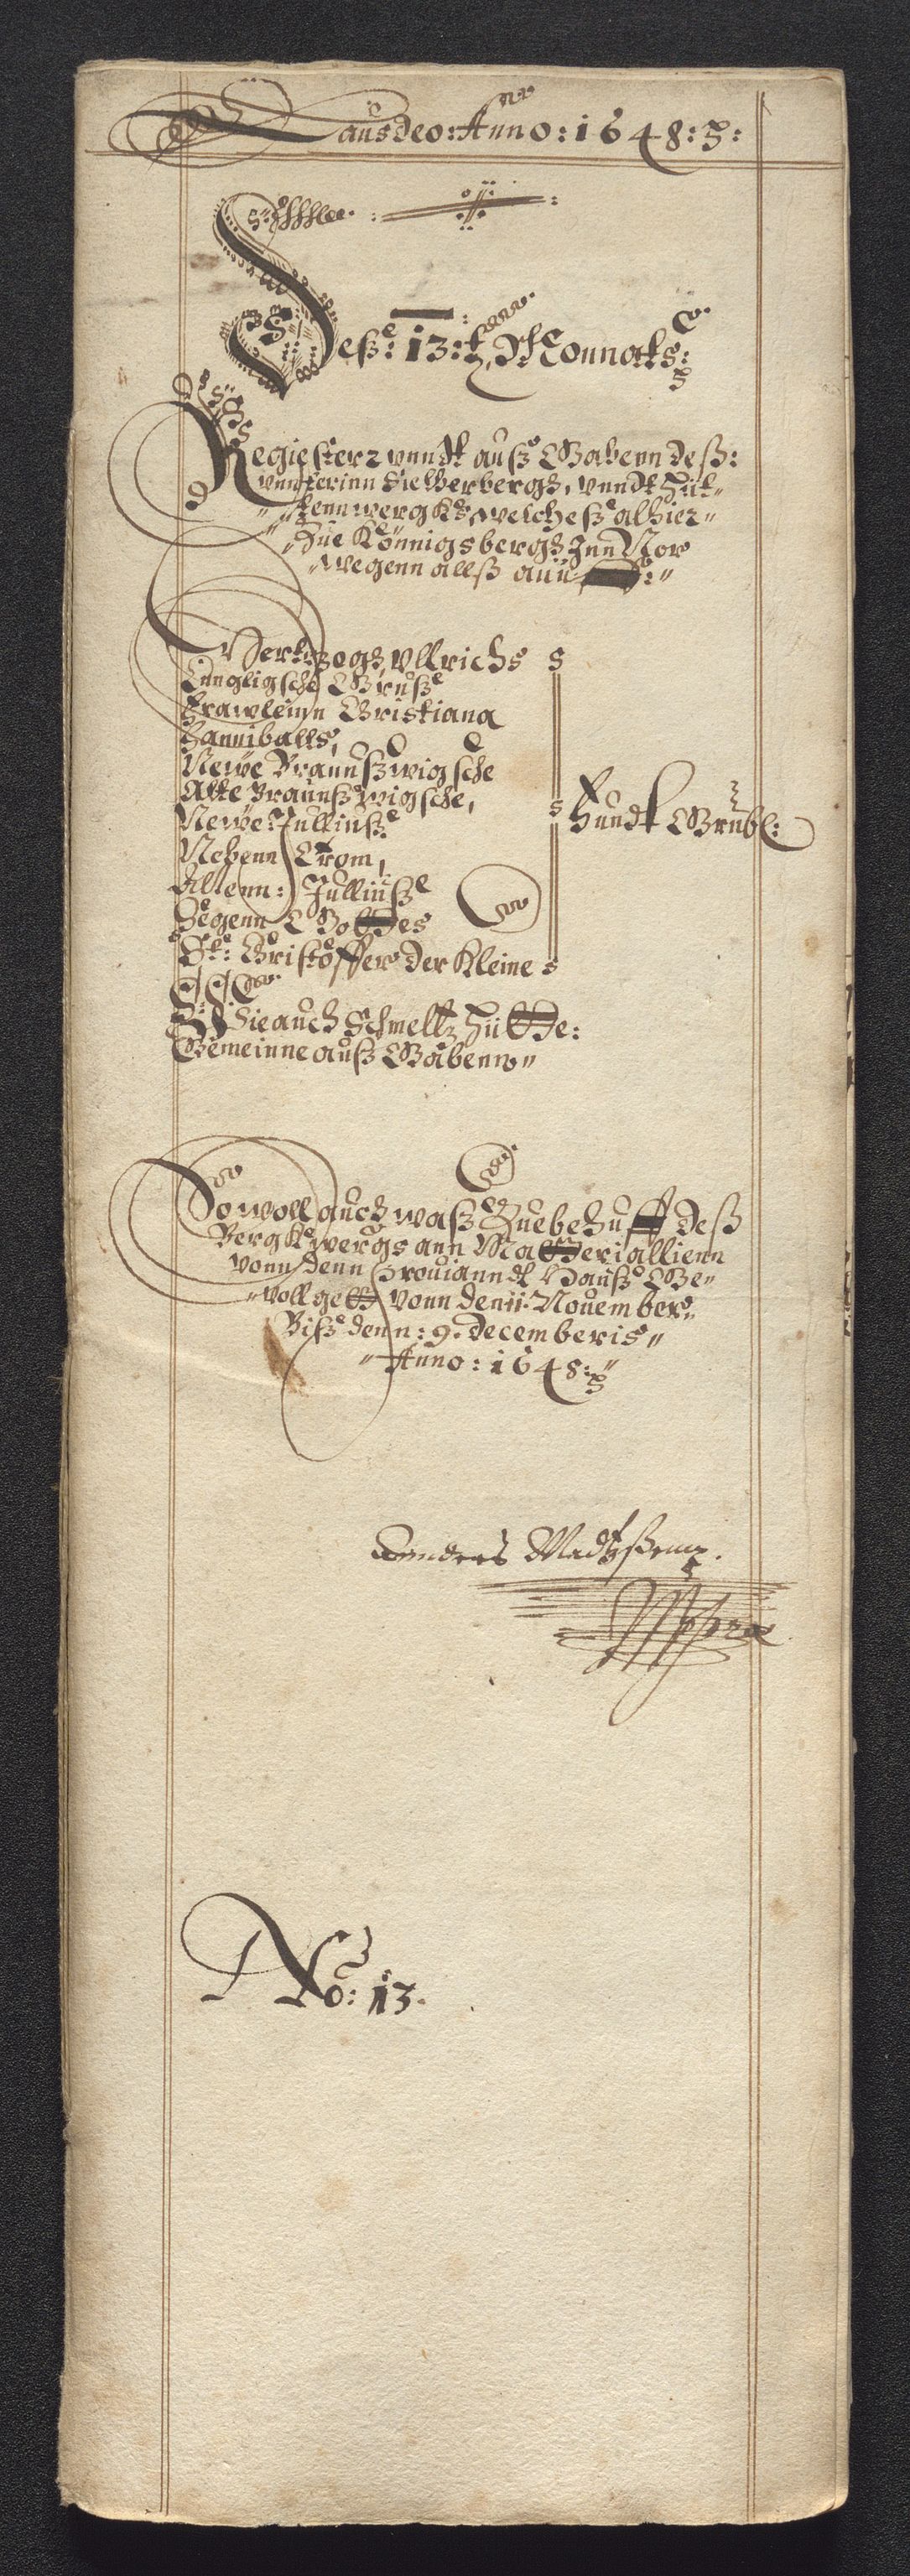 Lausdeo: Anno: 1648:
Deß: 13: Monnats:
Regiester vnndt auß Gabenn deß:
vnnserinn Sielberbergs, vnndt Hüt-
tennwergks, welcheß alhier
Zue Konnigsbergs Inn Nor
wegenn allß auü
Hertzogs, Vllrichs
Konnigliche Gruße
Frawleinn Cristiana
Hanniballs,
Newe Braunßwigsche
Alte Braunßwigsche,
Newe: Julliuß
Nebenn Trom,
Altenn: Julliuß
Segenn Gottes
St: Cristoffer der Kleine
Hundt Grube:
Wie auch Schmeltz Hütte:
Gemeinne auß Gabenn
So woll auch waß Zuebehuff deß
Bergkwergs ann Matterialliean
vonn denn Prouianndt Hauß Ge
vollgett vonn den 11. Nouember
Biß denn: 9. Decemberis
Anno: 1648:
Anders Madtzßenn.
Mppria
No: 13.